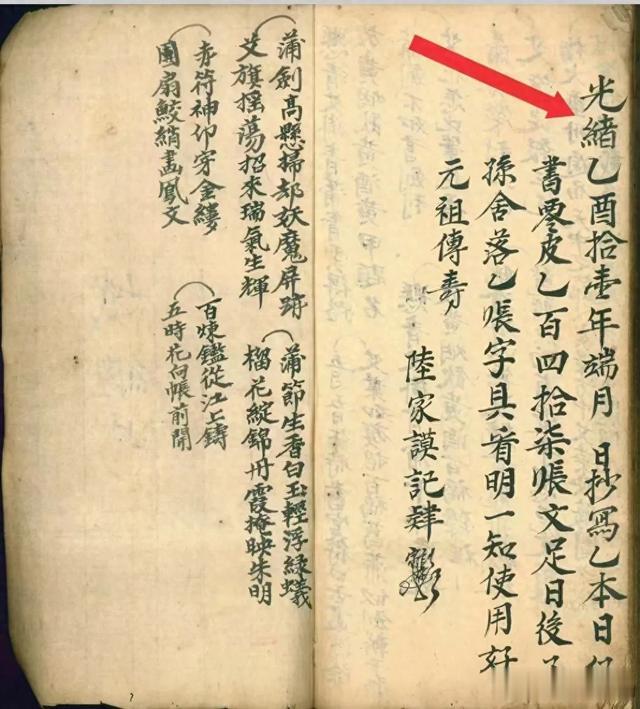 光緒乙酉拾壹年端月 日抄寫乙本日
書零皮乙百四拾柒帳文足日後
孫舍落乙帳字具看明一知使用好
元祖傳壽
陸家謨記肄
蒲劍高懸掃却妖魔屏跡
艾旗摇蕩招來瑞氣生輝
赤符神印穿金縷
團扇鮫綃畵鳳文
蒲節生香白玉輕浮綠蟻
榴花綻錦丹霞掩映朱明
百煉鑑從江上鑄
五時花向帳前開